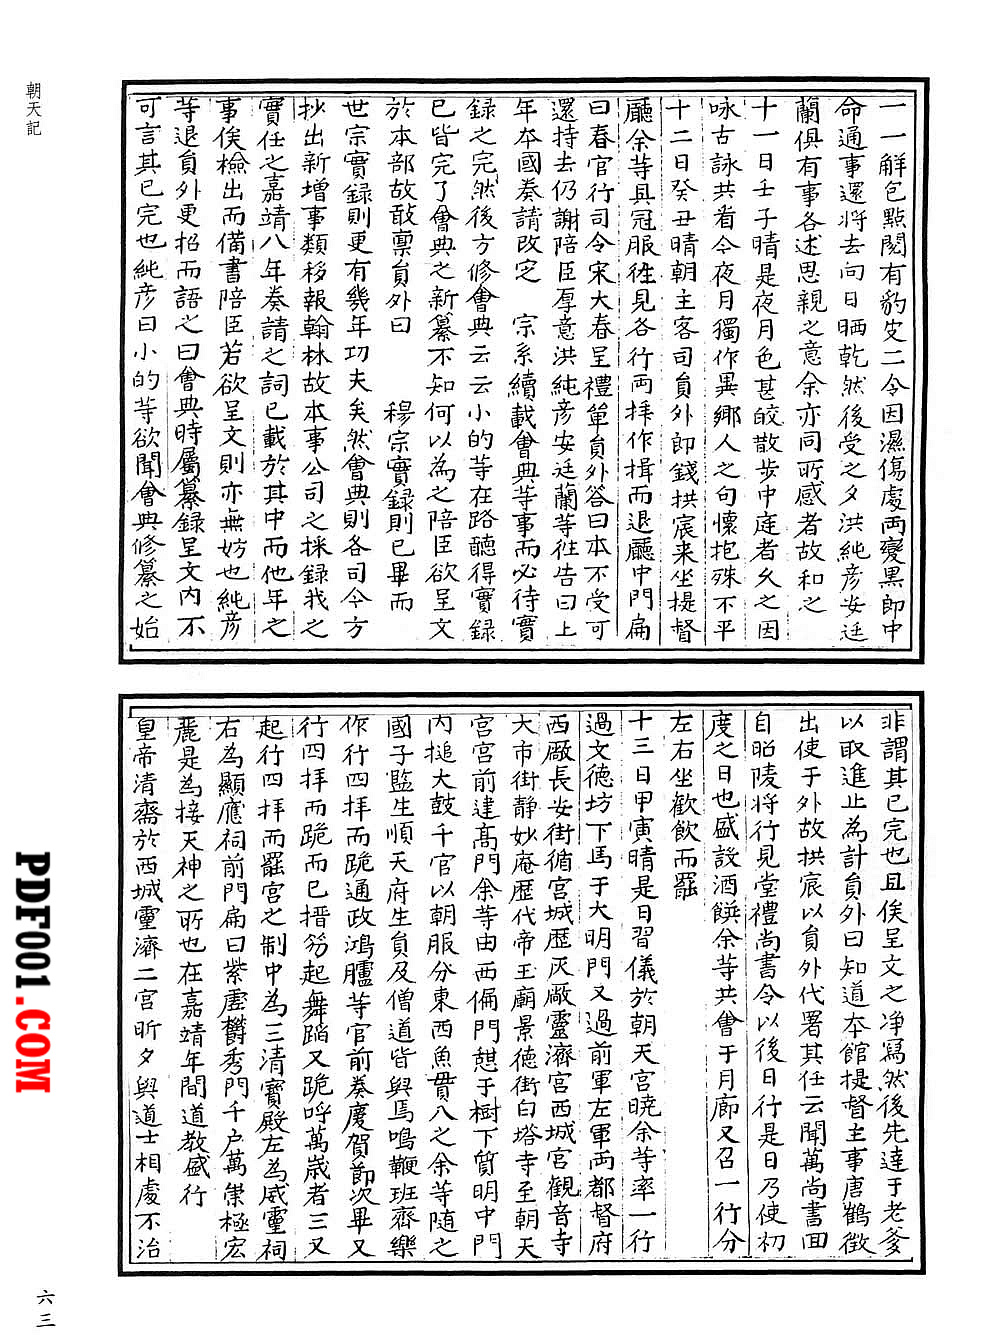 朝天記
一一解包點閱有豹皮二令因濕傷處兩變黑即中
命通事還將去向日晒乾然後受之夕洪純彥安廷
蘭俱有事各述思親之意余亦同所感者故和之
十一日壬子晴是夜月色甚皎散步中庭者久之因
咏古詠共看今夜月獨作異鄉人之句懷抱殊不平
十二日癸丑晴朝主客司員外郎錢拱宸来坐提督
廳余等具冠服徃見各行両拝作揖而退廳中門扁
曰春官行司令宋大春呈禮單員外答曰本不受可
還持去仍謝陪臣厚意洪純彦安廷蘭等徃告曰上
年夲國奏請改定 宗系續載㑹典等事而必待實
録之完然後方修㑹典云云小的等在路聽得實録
已皆完了㑹典之新纂不知何以為之陪臣欲呈文
於本部故敢稟員外曰 穆宗實録則已畢而
世宗實録則更有幾年功夫矣然㑹典則各司今方
抄出新增事類移報翰林故本事公司之採録我之
實任之嘉靖八年奏請之詞已載於其中而他年之
事俟檢出而備書陪臣若欲呈文則亦無妨也純彦
等退員外更招而語之曰㑹典時屬纂録呈文内不
可言其已完也純彦曰小的等欲聞㑹典修纂之始
非謂其已完也且俟呈文之净寫然後先達于老爹
以取進止為計員外曰知道夲館提督主事唐鶴徴
出使于外故拱宸以員外代署其任云聞萬尚書面
自昭陵将行見堂禮尚書令以後日行是日乃使初
度之日也盛設酒饌余等共㑹于月廊又召一行分
左右坐歡飲而罷
十三日甲寅晴是日習儀於朝天宮曉余等率一行
過文德坊下馬于大明門又過前軍左軍両都督府
西厰長安街循宮城歷灰厰靈濟宮西城宮觀音寺
大市街静妙庵歷代帝王廟景德街白塔寺至朝天
宮宮前建髙門余等由西偏門憇于樹下質明中門
内搥大鼓千官以朝服分東西魚貫入之余等随之
國子監生順天府生員及僧道皆與焉鳴鞭班齊樂
作行四拝而跪通政鴻臚等官前奏慶賀節次畢又
行四拝而跪而已搢笏起舞蹈又跪呼萬歳者三又
起行四拝而罷宮之制中為三清寳殿左為威靈祠
右為顯應祠前門扁曰紫虛欝秀門千户萬 極宏
麗是為接天神之所也在嘉靖年間道教盛行
皇帝清齋於西城靈濟二宮昕夕與道士相處不治
六三
PDF001.COM